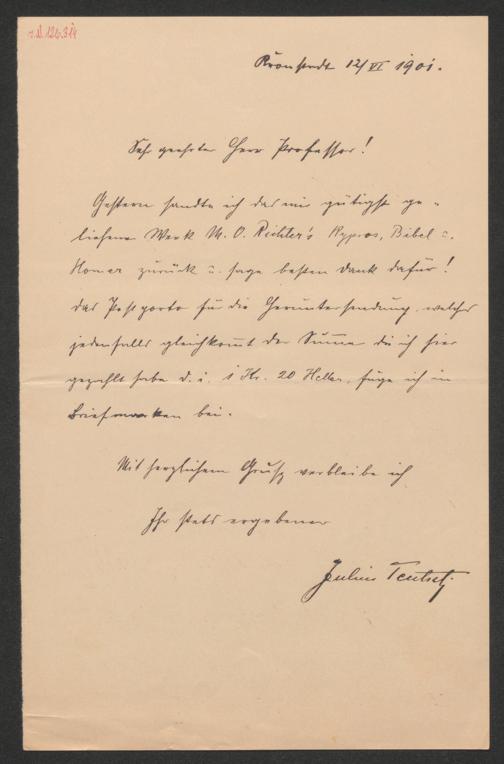 Kronstadt 12/VI 1901.
Sehr geehrter Herr Professor!
Gestern sandte ich das mir gütigst ge-
liehene Werk M. O. Richter's Kypros, Bibel u.
Homer zurück u. sage besten Dank dafür!
Das Postporto für die Heruntersendung, welches
jedenfalls gleichkommt der Summe die ich hier
gezahlt habe d. i. 1 Kr. 20 Heller, füge ich in
Briefmarken bei.
Mit herzlichem Gruß verbleibe ich
Ihr stets ergebener
Julius Teutsch